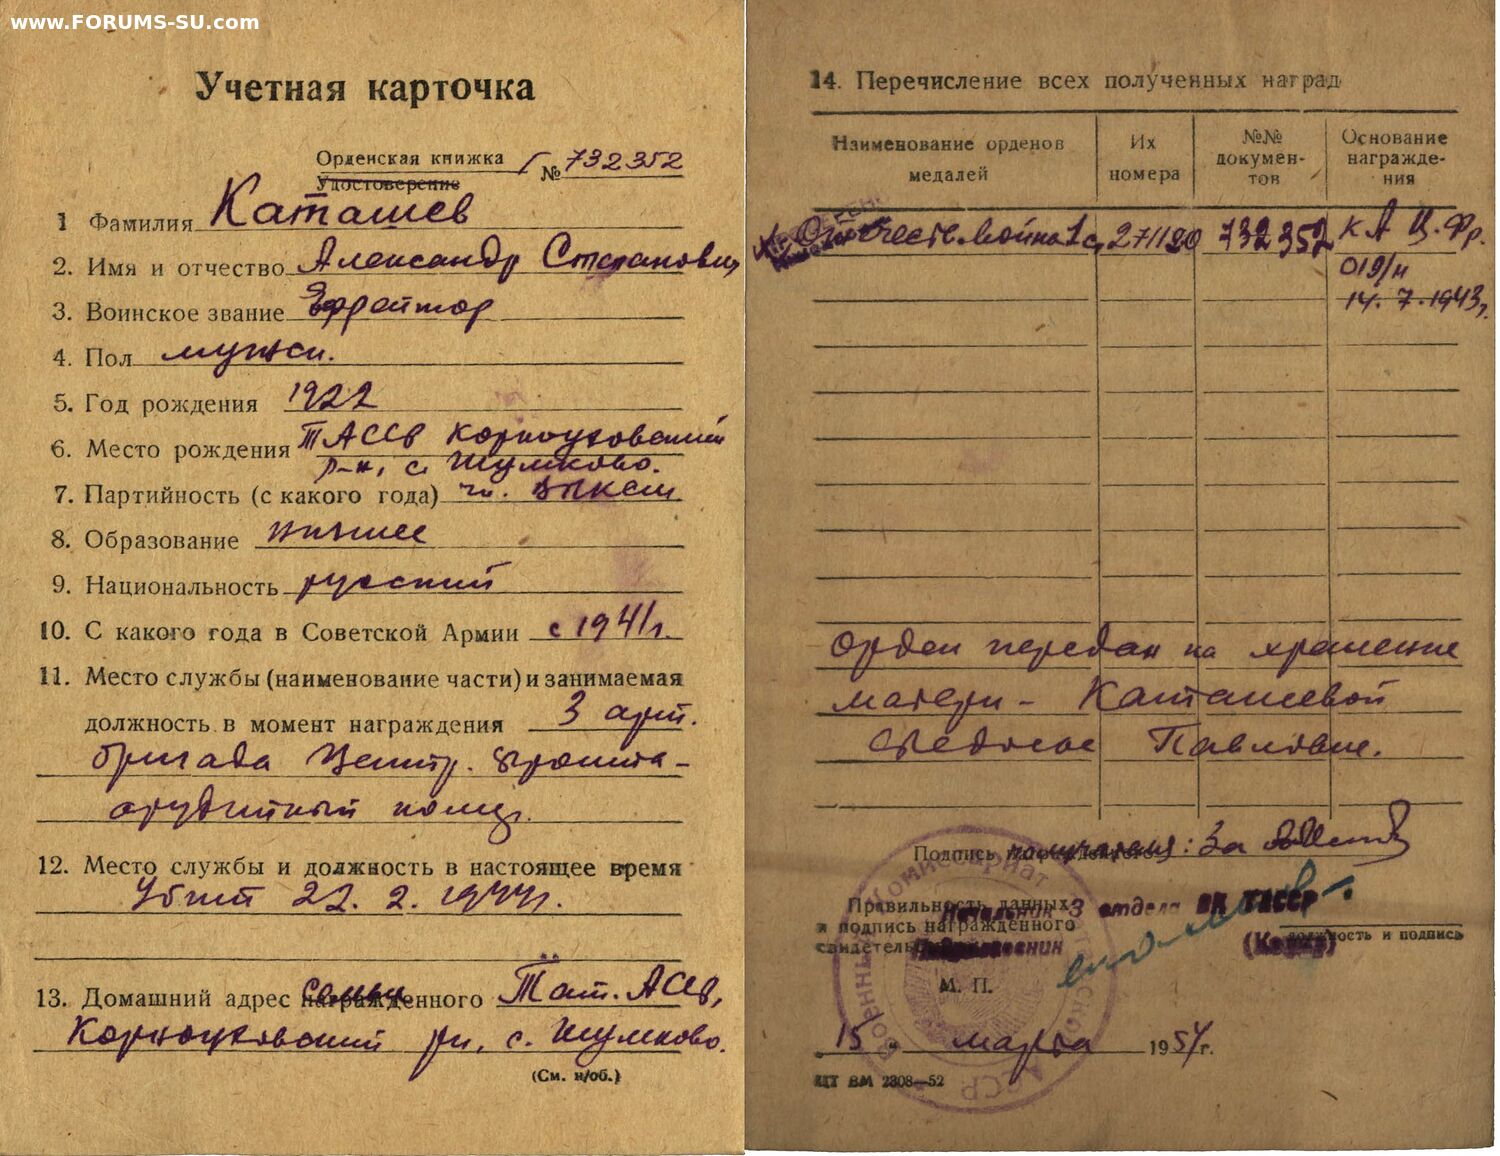 www.FORUMS-SU.com
Учетная карточка
Орденская книжка
Удостоверение № 732352
1 Фамилия Каташев
2. Имя и отчество Александр Степанович
3. Воинское звание Ефрейтор
4. Пол мужск.
5. Год рождения 1922
6. Место рождения ТАССР Корноуховский
р-н, с. Шумково.
7. Партийность (с какого года) чл. ВЛКСМ
8. Образование низшее
9. Национальность русский
10. С какого года в Советской Армии с 1941 г.
11. Место службы (наименование части) и занимаемая
должность в момент награждения 3 арт.
бригада Центр. фронта -
орудийный номер.
12. Место службы и должность в настоящее время
Убит 22. 2. 1944 г.
13. Домашний адрес награжденного семьи Тат. АССР,
Корноуховский рн, с. Шумково.
(См. н/об.)
14. Перечисление всех полученных наград
Наименование орденов медалей
Их номера
№№ докумен-тов
Основание награжде-ния
Отечеств. война 1 с. 271120 732352 КА Ц. Фр.
019/н
14. 7. 1943 г.
Орден передан на хранение
матери - Каташевой
Федосье Павловне.
Подпись получателя: За
Правильность данных
и подпись награжденного
Начальник 3 отдела ВК ТАССР
должность и подпись
М. П.
15 " марта 1954 г.
ЦТ ВМ 2308—52